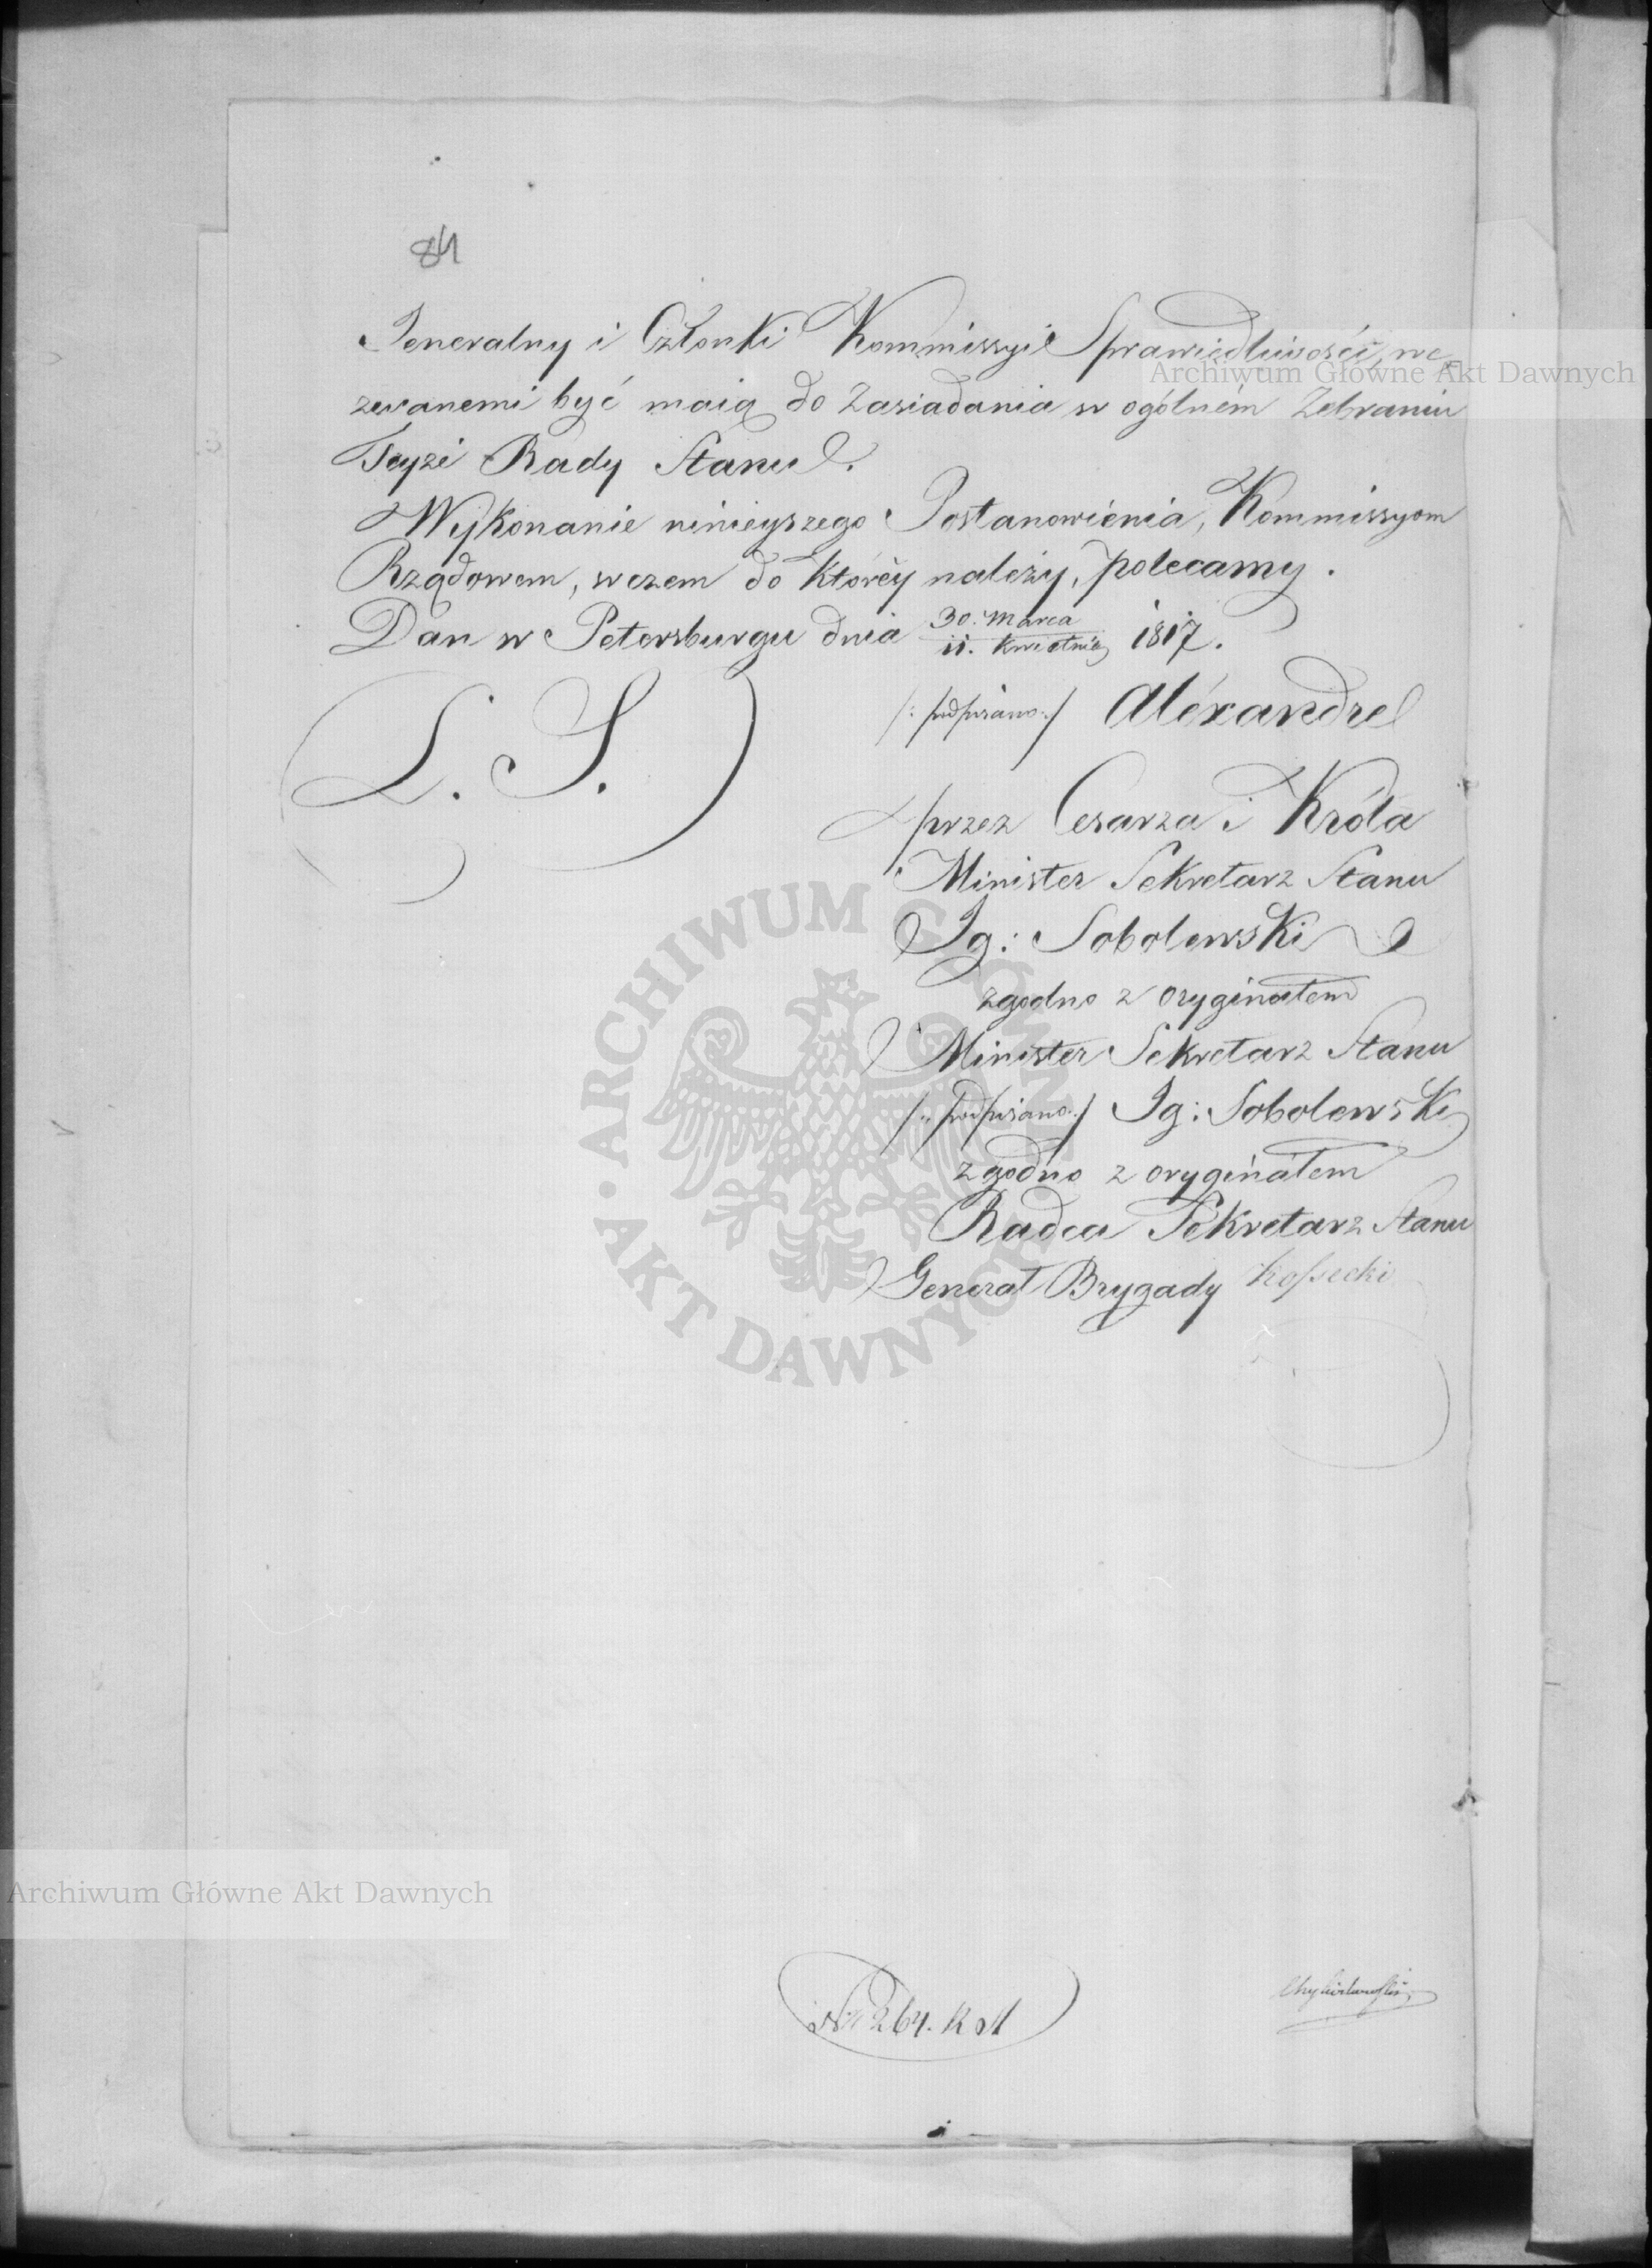 84
Jeneralny i Członki Kommissyi Sprawiedliwości, we
zwanemi być maią do Zasiadania w ogólném Zebraniu
Teyże Rady Stanu.
Wykonanie ninieyszego Postanowienia, Kommissyom
Rządowem, w czem do któréy należy, polecamy.
Dan w Petersburgu dnia 30. Marca / 11. Kwietnia 1817.
/: podpisano :/ Aléxandre
L. S.
przez Cesarza i Króla
Minister Sekretarz Stanu
Ig: Sobolewski
zgodno z oryginałem
Minister Sekretarz Stanu
/: podpisano :/ Ig: Sobolewski
zgodno z oryginałem
Radca Sekretarz Stanu
Generał Brygady Kossecki
264.
Archiwum Główne Akt Dawnych
Archiwum Główne Akt Dawnych
ARCHIWUM GŁÓWNE AKT DAWNYCH